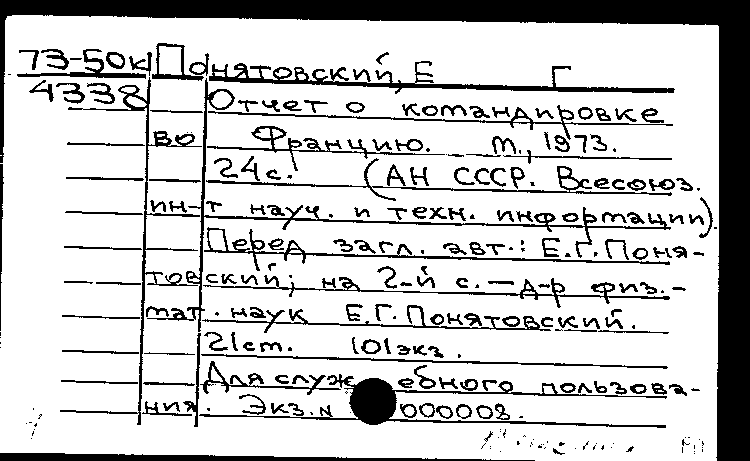 73-50к Понятовский, Е Г
4338 Отчет о командировке
во Францию. М., 1973.
24с. (АН СССР. Всесоюз.
ин-т науч. и техн. информации).
Перед загл. авт.: Е.Г.Поня-
товский; на 2-й с. — д-р физ.-
мат. наук Е.Г.Понятовский.
21см. 101экз.
Для служебного пользова-
ния. Экз. N 000008.